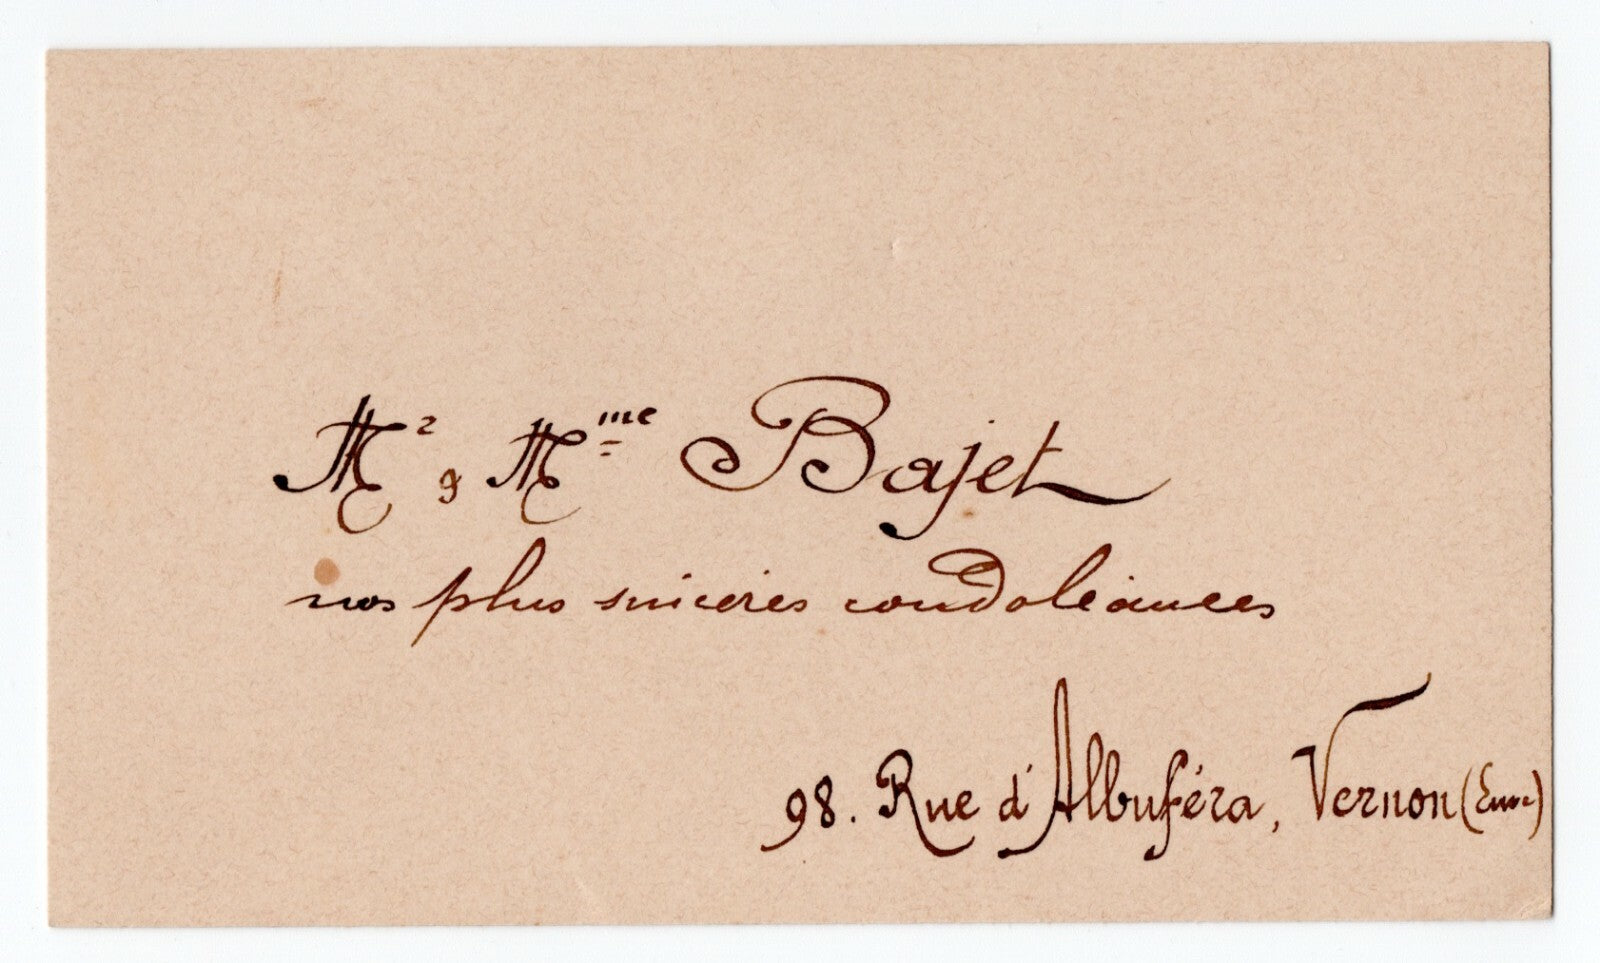 Mr & Mme Bajet
nos plus sincères condoléances
98. Rue d'Albuféra, Vernon (Eure)